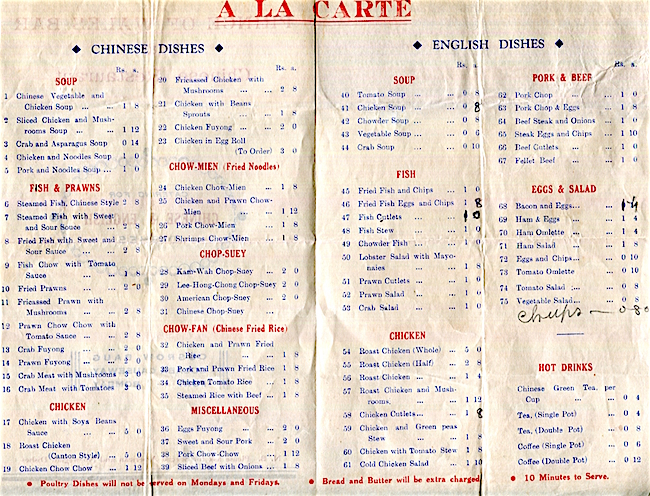 A LA CARTE
◆ CHINESE DISHES ◆
Rs. a.
SOUP
1 Chinese Vegetable and
Chicken Soup ... ... 1 8
2 Sliced Chicken and Mush-
rooms Soup ... ... 1 12
3 Crab and Asparagus Soup 0 14
4 Chicken and Noodles Soup 1 0
5 Pork and Noodles Soup ... 1 0
FISH & PRAWNS
6 Steamed Fish, Chinese Style 2 8
7 Steamed Fish with Sweet
and Sour Souce ... 2 8
8 Fried Fish with Sweet and
Sour Sauce ... ... 2 8
9 Fish Chow with Tomato
Sauce ... ... 1 8
10 Fried Prawns ... ... 2 0
11 Fricassed Prawn with
Mushrooms ... ... 2 8
12 Prawn Chow Chow with
Tomato Sauce ... ... 2 8
13 Crab Fuyong ... ... 2 0
14 Prawn Fuyong ... ... 2 0
15 Crab Meat with Mushrooms 3 0
16 Crab Meat with Tomatoes 3 0
CHICKEN
17 Chicken with Soya Beans
Sauce ... ... 5 0
18 Roast Chicken
(Canton Style) ... 5 0
19 Chicken Chow Chow ... 1 12
Rs. a.
20 Fricassed Chicken with
Mushrooms ... ... 2 8
21 Chicken with Beans
Sprouts ... ... 1 8
22 Chicken Fuyong ... ... 2 0
23 Chicken in Egg Roll
(To Order) 3 0
CHOW-MIEN (Fried Noodles)
24 Chicken Chow-Mien ... 1 8
25 Chicken and Prawn Chow-
Mien ... ... 1 12
26 Pork Chow-Mien ... 1 8
27 Shrimps Chow-Mien ... 1 8
CHOP-SUEY
28 Kam-Wah Chop-Suey ... 2 0
29 Lee-Hong-Chong Chop-Suey 2 0
30 American Chop-Suey ... 2 0
31 Chinese Chop-Suey ...
CHOW-FAN (Chinese Fried Rice)
32 Chicken and Prawn Fried
Rice ... ... 1 8
33 Pork and Prawn Fried Rice 1 8
34 Chicken Tomato Rice ... 1 8
35 Steamed Rice with Beef ... 1 8
MISCELLANEOUS
36 Eggs Fuyong ... ... 2 0
37 Sweet and Sour Pork ... 2 0
38 Pork Chow-Chow ... 1 12
39 Sliced Beef with Onions ... 1 8
◆ ENGLISH DISHES ◆
Rs. a.
SOUP
40 Tomato Soup ... ... 0 8
41 Chicken Soup ... ... 0 8
42 Chowder Soup ... ... 0 8
43 Vegetable Soup ... ... 0 6
44 Crab Soup ... ... 0 10
FISH
45 Fried Fish and Chips ... 1 0
46 Fried Fish Eggs and Chips 1 8
47 Fish Cutlets ... ... 1 0
48 Fish Stew ... ... 1 0
49 Chowder Fish ... ... 1 0
50 Lobster Salad with Mayo-
naies ... ... 1 8
51 Prawn Cutlets ... ... 1 0
52 Prawn Salad ... ... 1 0
53 Crab Salad ... ... 1 0
CHICKEN
54 Roast Chicken (Whole) ... 5 0
55 Roast Chicken (Half) ... 2 8
56 Roast Chicken ... ... 1 4
57 Roast Chicken and Mush-
rooms. ... ... 1 12
58 Chicken Cutlets ... ... 1 8
59 Chicken and Green peas
Stew ... ... 1 8
60 Chicken with Tomato Stew 1 8
61 Cold Chicken Salad ... 1 10
Rs. a.
PORK & BEEF
62 Pork Chop ... ... 1 0
63 Pork Chop & Eggs ... 1 8
64 Beef Steak and Onions ... 1 0
65 Steak Eggs and Chips ... 1 10
66 Beef Cutlets ... ... 1 0
67 Fellet Beef ... ... 1 0
EGGS & SALAD
68 Bacon and Eggs ... 1 4
69 Ham & Eggs ... ... 1 4
70 Ham Omlette ... ... 1 4
71 Ham Salad ... ... 1 8
72 Eggs and Chips ... ... 0 10
73 Tomato Omlette ... 0 10
74 Tomato Salad ... ... 0 8
75 Vegetable Salad ... ... 0 8
Chips — 0-80
HOT DRINKS
Chinese Green Tea. per
Cup ... ... 0 4
Tea, (Single Pot) ... 0 4
Tea, (Double Pot) ... 0 8
Coffee (Single Pot) ... 0 6
Coffee (Double Pot) ... 0 12
● Poultry Dishes will not be served on Mondays and Fridays. ● Bread and Butter will be extra charged ● 10 Minutes to Serve.